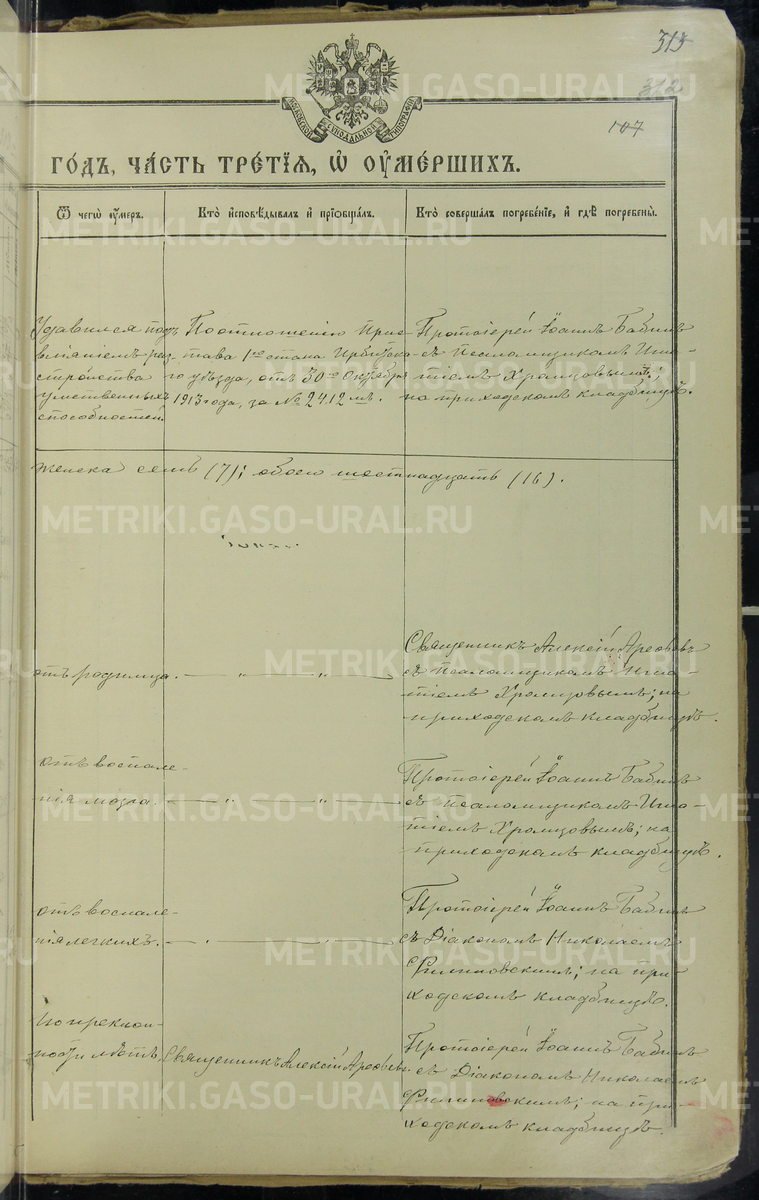 313
312
107
МОСКОВСКОЙ СѴНОДАЛЬНОЙ ТИПОГРАФІИ
ГО́ДЪ, ЧА́СТЬ ТРЕ́ТІѦ, Ѡ ОУМЕ́РШИХЪ.
Ѿ чегѡ̀ ᲂу҆́меръ.
Кто̀ и҆сповѣ́дывалъ и҆ прїѡбща́лъ.
Кто̀ соверша́лъ погребе́нїе, и҆ гдѣ̀ погребены̀.
Удавился подъ
вліяніемъ раз-
стройства
умственныхъ
способностей.
По отношенію При-
става 1го стана Ирбитска-
го уѣзда, отъ 30го Октября
1913 года, за № 2412 мъ.
Протоіерей Іоаннъ Бабинъ
съ Псаломщикомъ Игна-
тіемъ Хромцовымъ;
на приходскомъ кладбищѣ.
женска семь (7); обоего шестнадцать (16).
отъ родимца. — " — " —
Священникъ Алексій Арефьевъ
съ Псаломщикомъ Игна-
тіемъ Хромцовымъ; на
приходскомъ кладбищѣ.
отъ воспале-
нія мозга. — " — " —
Протоіерей Іоаннъ Бабинъ
съ Псаломщикомъ Игна-
тіемъ Хромцовымъ; на
приходскомъ кладбищѣ.
отъ воспале-
нія легкихъ. — " — " —
Протоіерей Іоаннъ Бабинъ
съ Діакономъ Николаемъ
Филипповскимъ; на при-
ходскомъ кладбищѣ.
По преклон-
ности лѣтъ.
Священникъ Алексій Арефьевъ
Протоіерей Іоаннъ Бабинъ
съ Діакономъ Николаемъ
Филипповскимъ; на при-
ходскомъ кладбищѣ.
METRIKI.GASO-URAL.RU